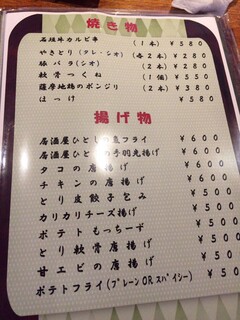 焼き物
石垣牛カルビ串 (1本) ¥580
やきとり(タレ・シオ) 各2本 ¥280
豚バラ(シオ) (2本) ¥280
軟骨つくね (1個) ¥550
薩摩地鶏のボンジリ (2本) ¥380
ほっけ ¥580
揚げ物
居酒屋ひとしの フライ ¥600
居酒屋ひと の手羽先揚げ ¥600
タコの唐揚げ ¥600
チキンの唐揚げ ¥600
とり皮餃子包み ¥500
カリカリチーズ揚げ ¥500
ポテトもっちーず ¥500
とり軟骨唐揚げ ¥500
甘エビの唐揚げ ¥500
ポテトフライ(プレーンORスパイシー) ¥500